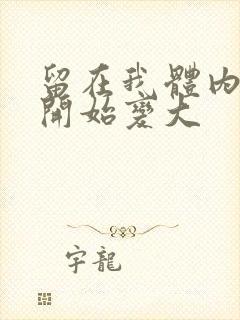 留在我體內
開始變大
宇龍